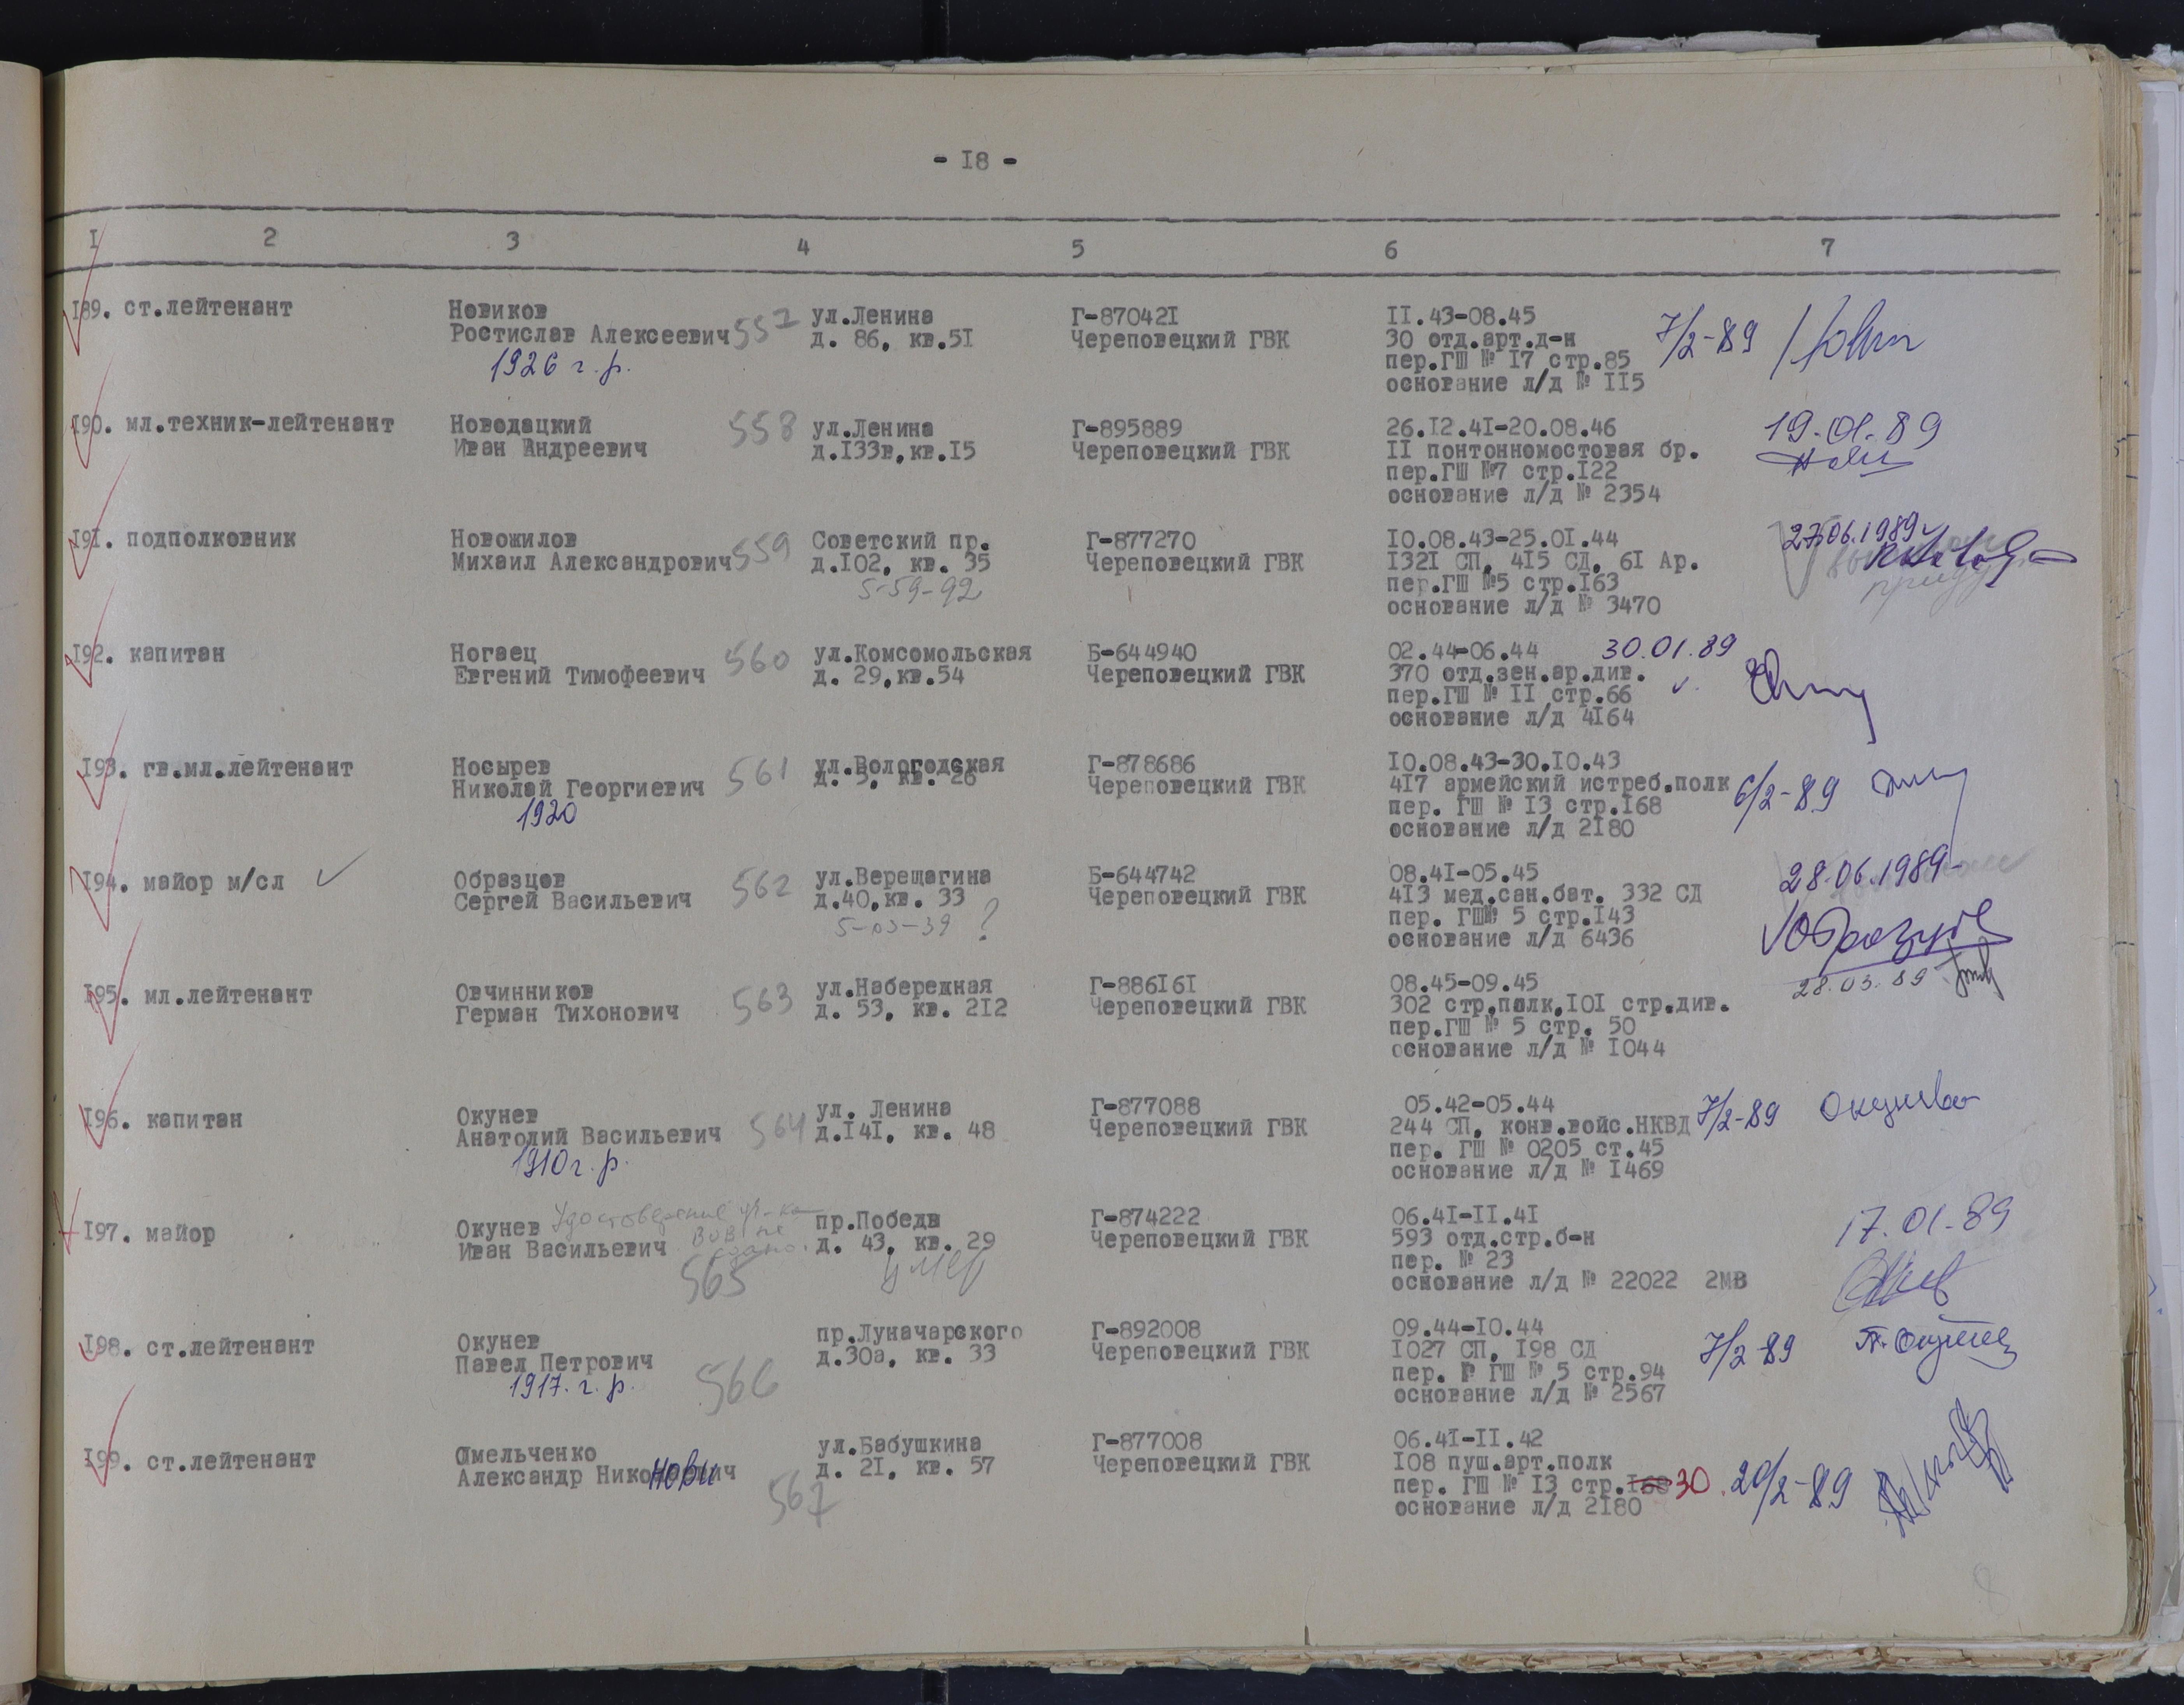 - I8 -
I 2 3 4 5 6 7
I89. ст.лейтенант Новиков 557 ул.Ленина Г-87042I II.43-08.45
Ростислав Алексеевич д. 86, кв.5I Череповецкий ГВК 30 отд.арт.д-н 7/2-89
1926 г.р. пер.ГШ № I7 стр.85
основание л/д № II5
I90. мл.техник-лейтенант Новодацкий 558 ул.Ленина Г-895889 26.I2.4I-20.08.46 19.01.89
Иван Андреевич д.I33в,кв.I5 Череповецкий ГВК II понтонномостовая бр.
пер.ГШ №7 стр.I22
основание л/д № 2354
I9I. подполковник Новожилов 559 Советский пр. Г-877270 I0.08.43-25.0I.44 27.06.1989
Михаил Александрович д.I02, кв. 35 Череповецкий ГВК I32I СП, 4I5 СД, 6I Ар.
5-59-92 пер.ГШ №5 стр.I63
основание л/д № 3470
I92. капитан Ногаец 560 ул.Комсомольская Б-644940 02.44-06.44 30.01.89
Евгений Тимофеевич д. 29,кв.54 Череповецкий ГВК 370 отд.зен.ар.див.
пер.ГШ № II стр.66
основание л/д 4I64
I93. гв.мл.лейтенант Носырев 561 ул.Вологодская Г-878686 I0.08.43-30.I0.43
Николай Георгиевич д. 5, кв. 26 Череповецкий ГВК 4I7 армейский истреб.полк 6/2-89
1920 пер. ГШ № I3 стр.I68
основание л/д 2I80
I94. майор м/сл Образцов 562 ул.Верещагина Б-644742 08.4I-05.45 28.06.1989
Сергей Васильевич д.40,кв. 33 Череповецкий ГВК 4I3 мед.сан.бат. 332 СД
5-03-39 ? пер. ГШ№ 5 стр.I43
основание л/д 6436 Образцов
I95. мл.лейтенант Овчинников 563 ул.Набережная Г-886I6I 08.45-09.45 28.03.89
Герман Тихонович д. 53, кв. 2I2 Череповецкий ГВК 302 стр.полк,I0I стр.див.
пер.ГШ № 5 стр. 50
основание л/д № I044
I96. капитан Окунев 564 ул. Ленина Г-877088 05.42-05.44
Анатолий Васильевич д.I4I, кв. 48 Череповецкий ГВК 244 СП, конв.войс.НКВД 7/2-89
1910 г.р. пер. ГШ № 0205 ст.45
основание л/д № I469
I97. майор Окунев Удостоверение уч-ка пр.Победы Г-874222 06.4I-II.4I 17.01.89
Иван Васильевич ВОВ не д. 43, кв. 29 Череповецкий ГВК 593 отд.стр.б-н
565 умер пер. № 23
основание л/д № 22022 2МВ
I98. ст.лейтенант Окунев 566 пр.Луначарского Г-892008 09.44-I0.44
Павел Петрович д.30а, кв. 33 Череповецкий ГВК I027 СП, I98 СД 7/2-89
1917.г.р. пер. № ГШ № 5 стр.94
основание л/д № 2567
I99. ст.лейтенант Омельченко 567 ул.Бабушкина Г-877008 06.4I-II.42
Александр Никонович д. 2I, кв. 57 Череповецкий ГВК I08 пуш.арт.полк
пер. ГШ № I3 стр.I68 30 20/2-89
основание л/д 2I80